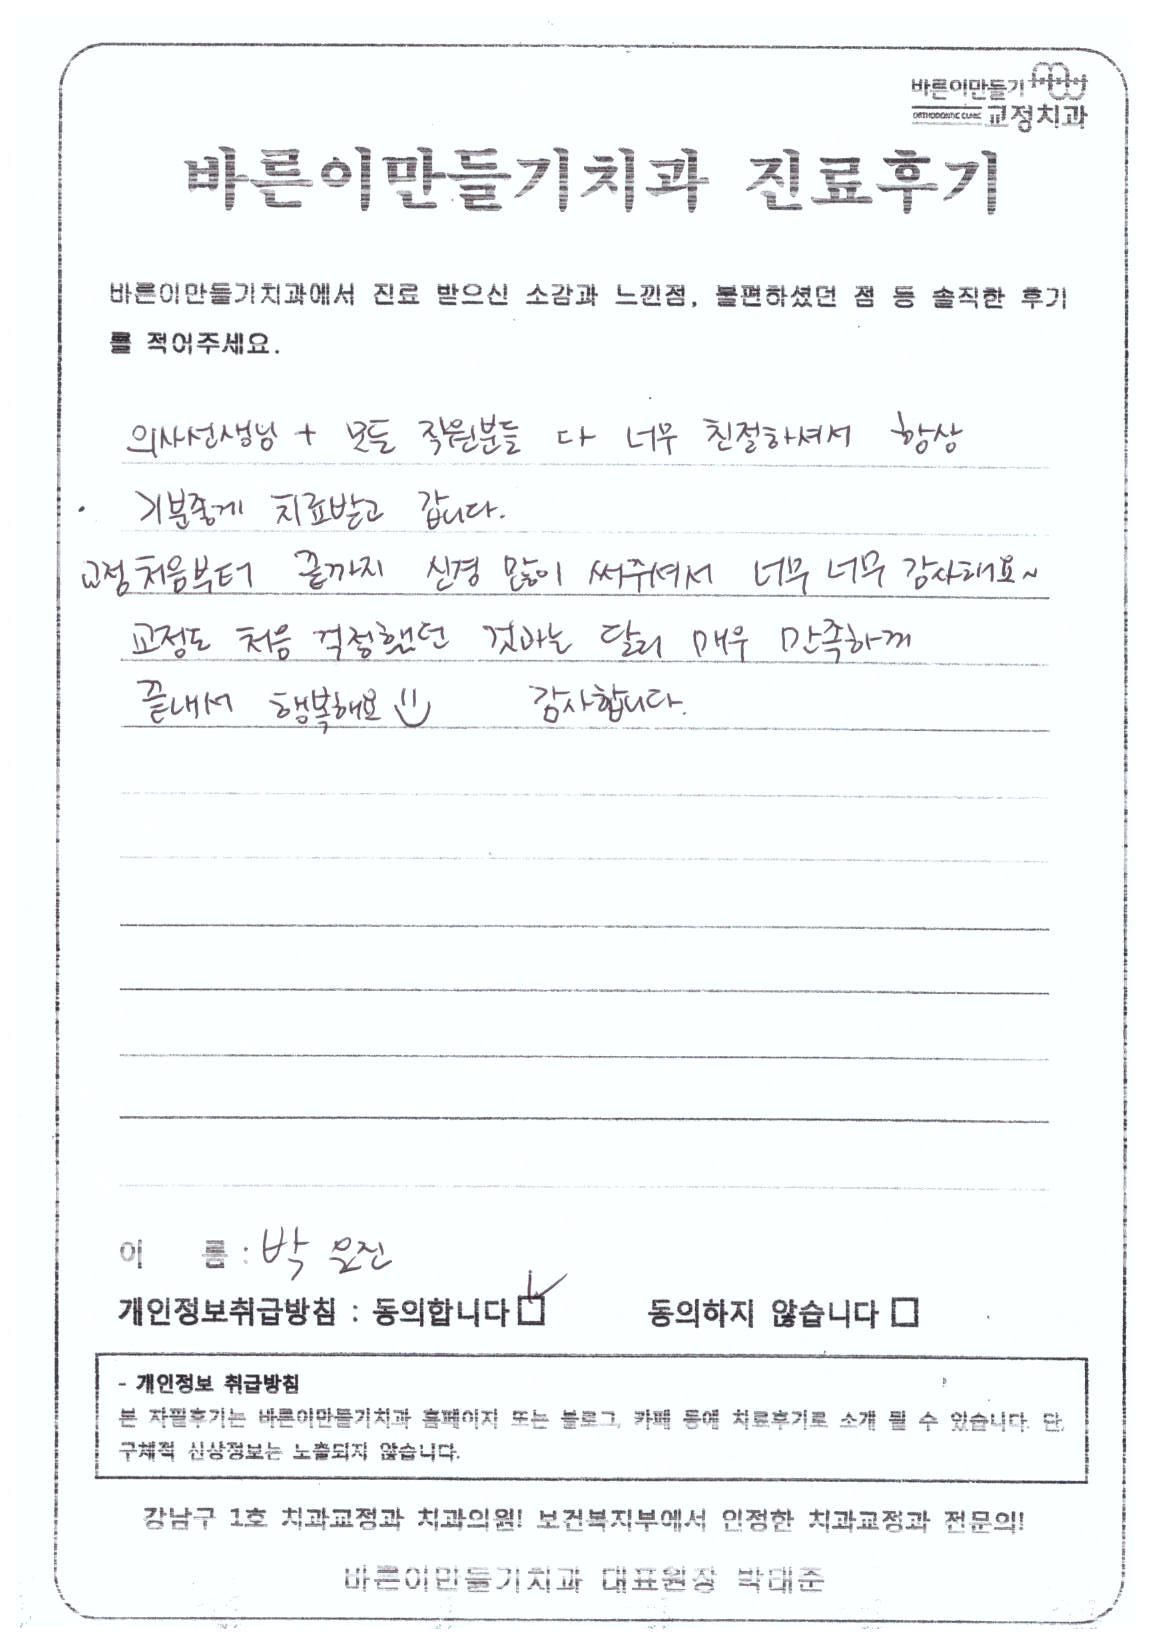 바른이만들기
ORTHODONTIC CLINIC 교정치과
바른이만들기치과 진료후기
바른이만들기치과에서 진료 받으신 소감과 느낀점, 불편하셨던 점 등 솔직한 후기
를 적어주세요.
의사선생님 + 모든 직원분들 다 너무 친절하셔서 항상
기분좋게 치료받고 갑니다.
교정처음부터 끝까지 신경 많이 써주셔서 너무 너무 감사해요~
교정도 처음 걱정했던 것과는 달리 매우 만족하게
끝내서 행복해요 감사합니다.
이 름 : 박 은진
개인정보취급방침 : 동의합니다 동의하지 않습니다
- 개인정보 취급방침
본 자필후기는 바른이만들기치과 홈페이지 또는 블로그, 카페 등에 치료후기로 소개 될 수 있습니다. 단,
구체적 신상정보는 노출되지 않습니다.
강남구 1호 치과교정과 치과의원! 보건복지부에서 인정한 치과교정과 전문의!
바른이만들기치과 대표원장 박태준